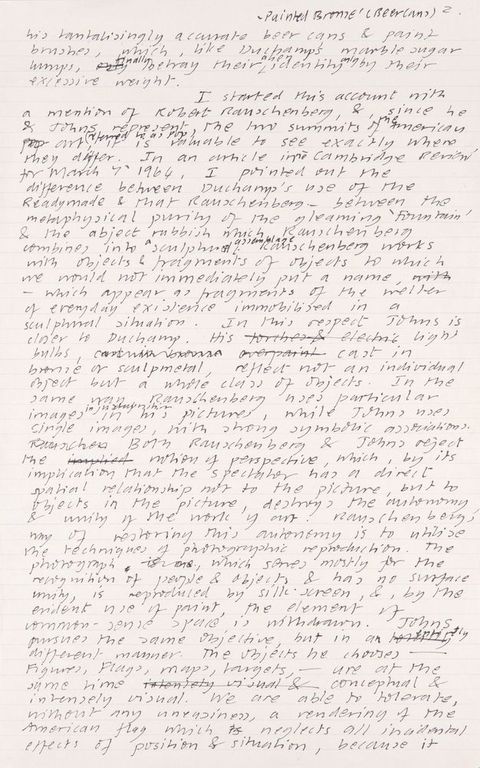 'Painted Bronze' (Beer Cans) 2.
his tantalisingly accurate beer cans & paint
brushes, which, like Duchamp's marble sugar
lumps, finally betray their identity only by their
excessive weight.
I started this account with
a mention of Robert Rauschenberg, &, since he
& Johns represent the two summits of the American
art, it is valuable to see exactly where
they differ. In an article in Cambridge Review
for March 7 1964, I pointed out the
difference between Duchamp's use of the
Readymade & that Rauschenberg – between the
metaphysical purity of the gleaming 'Fountain'
& the abject rubbish which Rauschenberg
combines into a sculptural assemblage. Rauschenberg works
with objects & fragments of objects to which
we would not immediately put a name with
– which appear as fragments of the welter
of everyday existence immobilised in a
sculptural situation. In this respect Johns is
closer to Duchamp. His torches & electric light
bulbs, overpaint cast in
bronze or sculpmetal, reflect not an individual
object but a whole class of objects. In the
same way Rauschenberg uses particular
images in his pictures, while Johns uses
single images, with strong symbolic associations.
Rauschen Both Rauschenberg & Johns reject
the implied notion of perspective, which, by its
implication that the spectator has a direct
spatial relationship not to the picture, but to
objects in the picture, destroys the autonomy
& unity of the work of art. Rauschenberg's
way of restoring this autonomy is to utilise
the techniques of photographic reproduction. The
photograph, which serves mostly for the
recognition of people & objects & has no surface
unity, is reproduced by silk-screen, &, by the
evident use of paint, the element of
common-sense space is withdrawn. Johns
pursues the same objective, but in an entirely
different manner. The objects he chooses –
Figures, Flags, maps, targets, – are at the
same time intensely visual & conceptual &
intensely visual. We are able to tolerate,
without any uneasiness, a rendering of the
American flag which neglects all incidental
effects of position & situation, because it